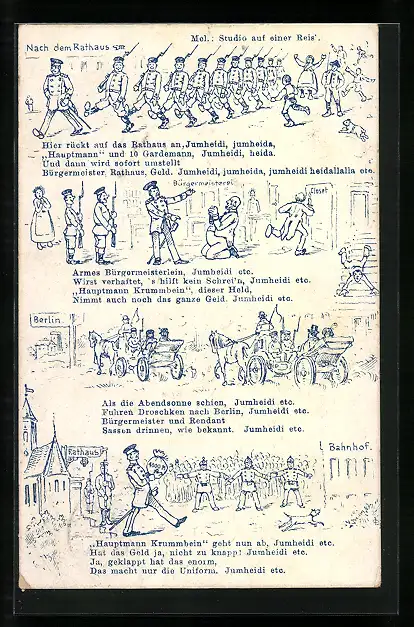 Mel.: Studio auf einer Reis'.
Nach dem Rathaus
Hier rückt auf das Rathaus an, Jumheidi, jumheida,
„Hauptmann" und 10 Gardemann, Jumheidi, heida.
Und dann wird sofort umstellt
Bürgermeister, Rathaus, Geld. Jumheidi, jumheida, jumheidi heidallalla etc.
Bürgermeisterei
Closet
Armes Bürgermeisterlein, Jumheidi etc.
Wirst verhaftet, 's hilft kein Schrei'n, Jumheidi etc.
„Hauptmann Krummbein", dieser Held,
Nimmt auch noch das ganze Geld. Jumheidi etc.
Berlin.
Als die Abendsonne schien, Jumheidi etc.
Fuhren Droschken nach Berlin, Jumheidi etc.
Bürgermeister und Rendant
Sassen drinnen, wie bekannt. Jumheidi etc.
Rathaus
Bahnhof.
„Hauptmann Krummbein" geht nun ab, Jumheidi etc.
Hat das Geld ja, nicht zu knapp! Jumheidi etc.
Ja, geklappt hat das enorm,
Das macht nur die Uniform. Jumheidi etc.